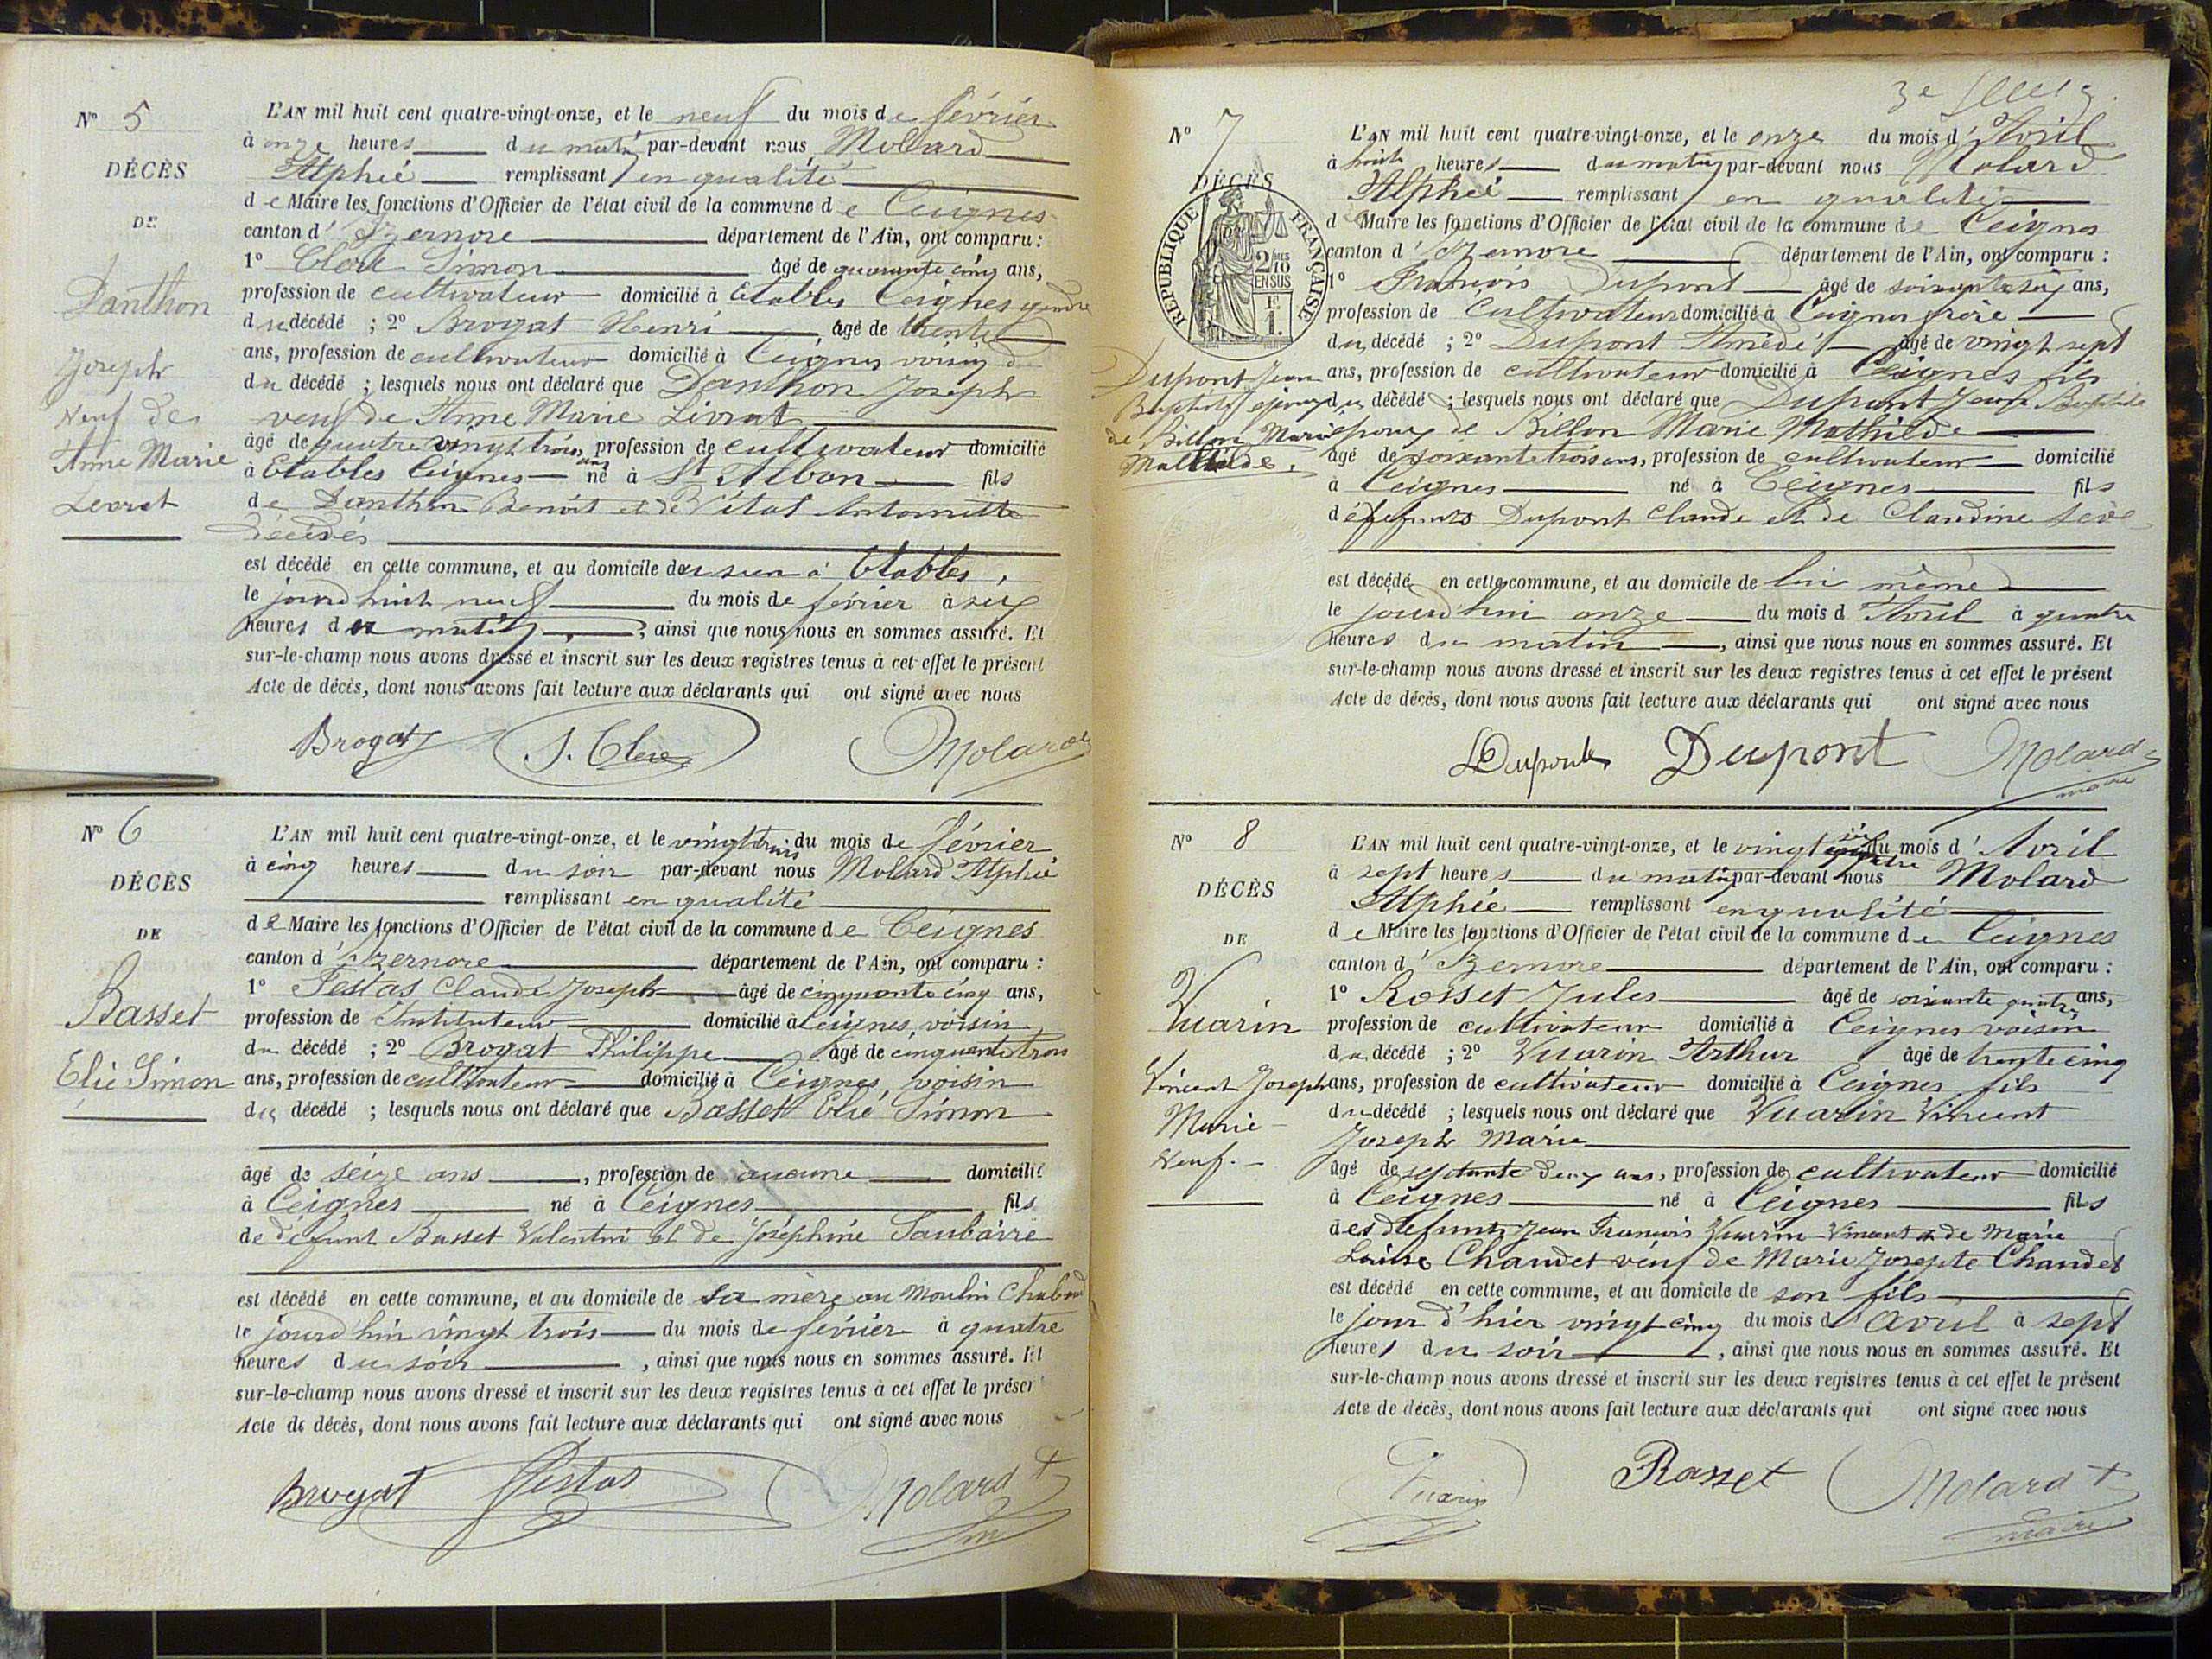 N° 5
DÉCÈS
DE
Danthon
Joseph
Veuf de
Anne Marie
Livrat
L'AN mil huit cent quatre-vingt-onze, et le neuf du mois de février
à onze heures du matin par-devant nous Molard
Alphée remplissant en qualité
de Maire les fonctions d'Officier de l'état civil de la commune de Ceignes
canton d'Izernore département de l'Ain, ont comparu :
1° Clerc Simon âgé de quarante cinq ans,
profession de cultivateur domicilié à Etables Ceignes gendre
du décédé ; 2° Brogat Henri, âgé de trente
ans, profession de cultivateur domicilié à Ceignes voisin
du décédé ; lesquels nous ont déclaré que Danthon Joseph
veuf de Anne Marie Livrat
âgé de quatre vingt trois ans, profession de cultivateur domicilié
à Etables Ceignes né à St Alban fils
de Danthon Benoît et de Antoinette
décédés
est décédé en cette commune, et au domicile du sien à Etables,
le jourd'huit neuf du mois de février à
heures du matin, ainsi que nous nous en sommes assuré. Et
sur-le-champ nous avons dressé et inscrit sur les deux registres tenus à cet effet le présent
Acte de décès, dont nous avons fait lecture aux déclarants qui ont signé avec nous
Brogat S. Clerc Molard
N° 6
DÉCÈS
DE
Basset
Elie Simon
L'AN mil huit cent quatre-vingt-onze, et le vingt trois du mois de février
à cinq heures du soir par-devant nous Molard Alphée
remplissant en qualité
de Maire les fonctions d'Officier de l'état civil de la commune de Ceignes
canton d'Izernore département de l'Ain, ont comparu :
1° Festas Claude Joseph âgé de cinquante cinq ans,
profession de Instituteur domicilié à Ceignes, voisin
du décédé ; 2° Brogat Philippe âgé de cinquante trois
ans, profession de cultivateur domicilié à Ceignes, voisin
du décédé ; lesquels nous ont déclaré que Basset Elie Simon
âgé de seize ans, profession de aucune domicilié
à Ceignes né à Ceignes fils
de défunt Basset Valentin et de Joséphine
est décédé en cette commune, et au domicile de sa mère au Moulin Chabaud
le jourd'hui vingt trois du mois de février à quatre
heures du soir, ainsi que nous nous en sommes assuré. Et
sur-le-champ nous avons dressé et inscrit sur les deux registres tenus à cet effet le présent
Acte de décès, dont nous avons fait lecture aux déclarants qui ont signé avec nous
Brogat Festas Molard
3e
N° 7
DÉCÈS
RÉPUBLIQUE FRANÇAISE
2/10 EN SUS
F 1.
Dupont Jean
Baptiste époux
de Billon Marie
Mathilde.
L'AN mil huit cent quatre-vingt-onze, et le onze du mois d'Avril
à huit heures du matin par-devant nous Molard
Alphée remplissant en qualité
de Maire les fonctions d'Officier de l'état civil de la commune de Ceignes
canton d'Izernore département de l'Ain, ont comparu :
1° François Dupont âgé de ans,
profession de cultivateur domicilié à Ceignes frère
du décédé ; 2° Dupont Amédé âgé de vingt sept
ans, profession de cultivateur domicilié à Ceignes fils
du décédé ; lesquels nous ont déclaré que Dupont Jean Baptiste
époux de Billon Marie Mathilde
âgé de soixante trois ans, profession de cultivateur domicilié
à Ceignes né à Ceignes fils
Dupont Claude et de Claudine
est décédé en cette commune, et au domicile de lui même
le jourd'hui onze du mois d'Avril à quatre
heures du matin, ainsi que nous nous en sommes assuré. Et
sur-le-champ nous avons dressé et inscrit sur les deux registres tenus à cet effet le présent
Acte de décès, dont nous avons fait lecture aux déclarants qui ont signé avec nous
Dupont Dupont Molard
maire
N° 8
DÉCÈS
DE
Vuarin
Vincent Joseph
Marie
Veuf.
L'AN mil huit cent quatre-vingt-onze, et le vingt six du mois d'Avril
à sept heures du matin par-devant nous Molard
Alphée remplissant en qualité
de Maire les fonctions d'Officier de l'état civil de la commune de Ceignes
canton d'Izernore département de l'Ain, ont comparu :
1° Rosset Jules âgé de soixante quatre ans,
profession de cultivateur domicilié à Ceignes voisin
du décédé ; 2° Vuarin Arthur âgé de trente cinq
ans, profession de cultivateur domicilié à Ceignes fils
du décédé ; lesquels nous ont déclaré que Vuarin Vincent
Joseph Marie
âgé de septante deux ans, profession de cultivateur domicilié
à Ceignes né à Ceignes fils
des défunts Jean François Vuarin Vincent et de Marie
Louise Chandet veuf de Marie Josepte Chandet
est décédé en cette commune, et au domicile de son fils
le jour d'hier vingt cinq du mois d'avril à sept
heures du soir, ainsi que nous nous en sommes assuré. Et
sur-le-champ nous avons dressé et inscrit sur les deux registres tenus à cet effet le présent
Acte de décès, dont nous avons fait lecture aux déclarants qui ont signé avec nous
Vuarin Rosset Molard
maire